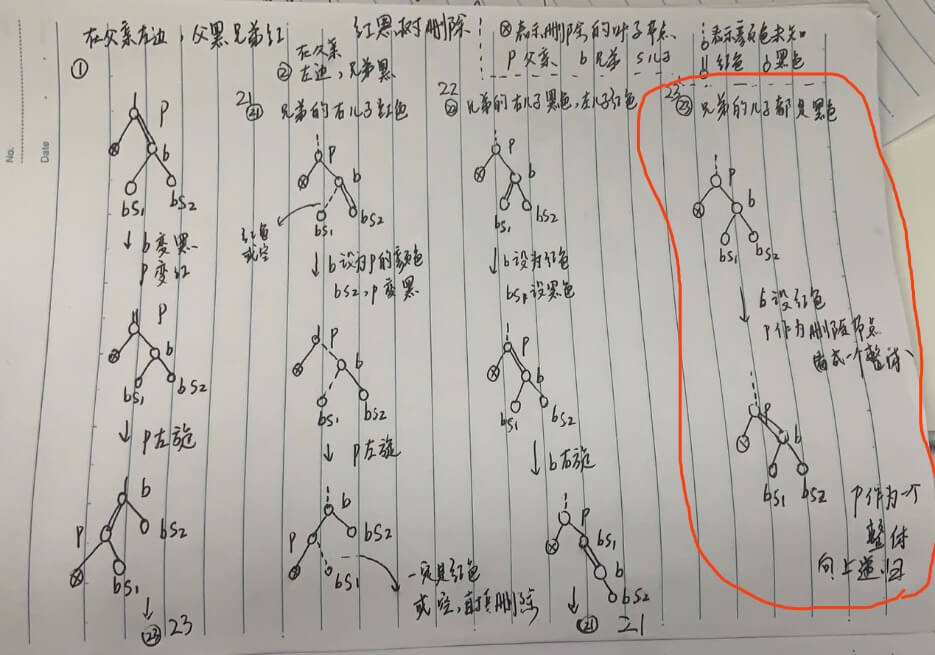 No.
Date
在父亲左边,父黑兄弟红
①
红黑树删除
ⓧ表示删除的叶子节点
表示颜色未知
P 父亲 b 兄弟 s儿子
红色 黑色
P
b
bS1
bS2
↓ b变黑
P变红
P
b
bS1
bS2
↓ P左旋
b
P
bS2
bS1
↓
㉓ 23
在父亲
② 左边,兄弟黑
21
㉑ 兄弟的右儿子红色
P
b
bS1
bS2
红色
或空
↓ b设为P的颜色
bS2,P变黑
P
b
bS1
bS2
↓ P左旋
b
P
bS2
bS1
一定是红色
或空,直接删除
22
㉒ 兄弟的右儿子黑色,左儿子红色
P
b
bS1
bS2
↓ b设为红色
bS1设黑色
P
b
bS1
bS2
↓ b右旋
P
bS1
b
bS2
↓
㉑ 21
23
㉓ 兄弟的儿子都是黑色
P
b
bS1
bS2
↓ b设红色
P作为删除节点
看成一个整体
P
b
bS1
bS2
P作为一个
整体
向上递归